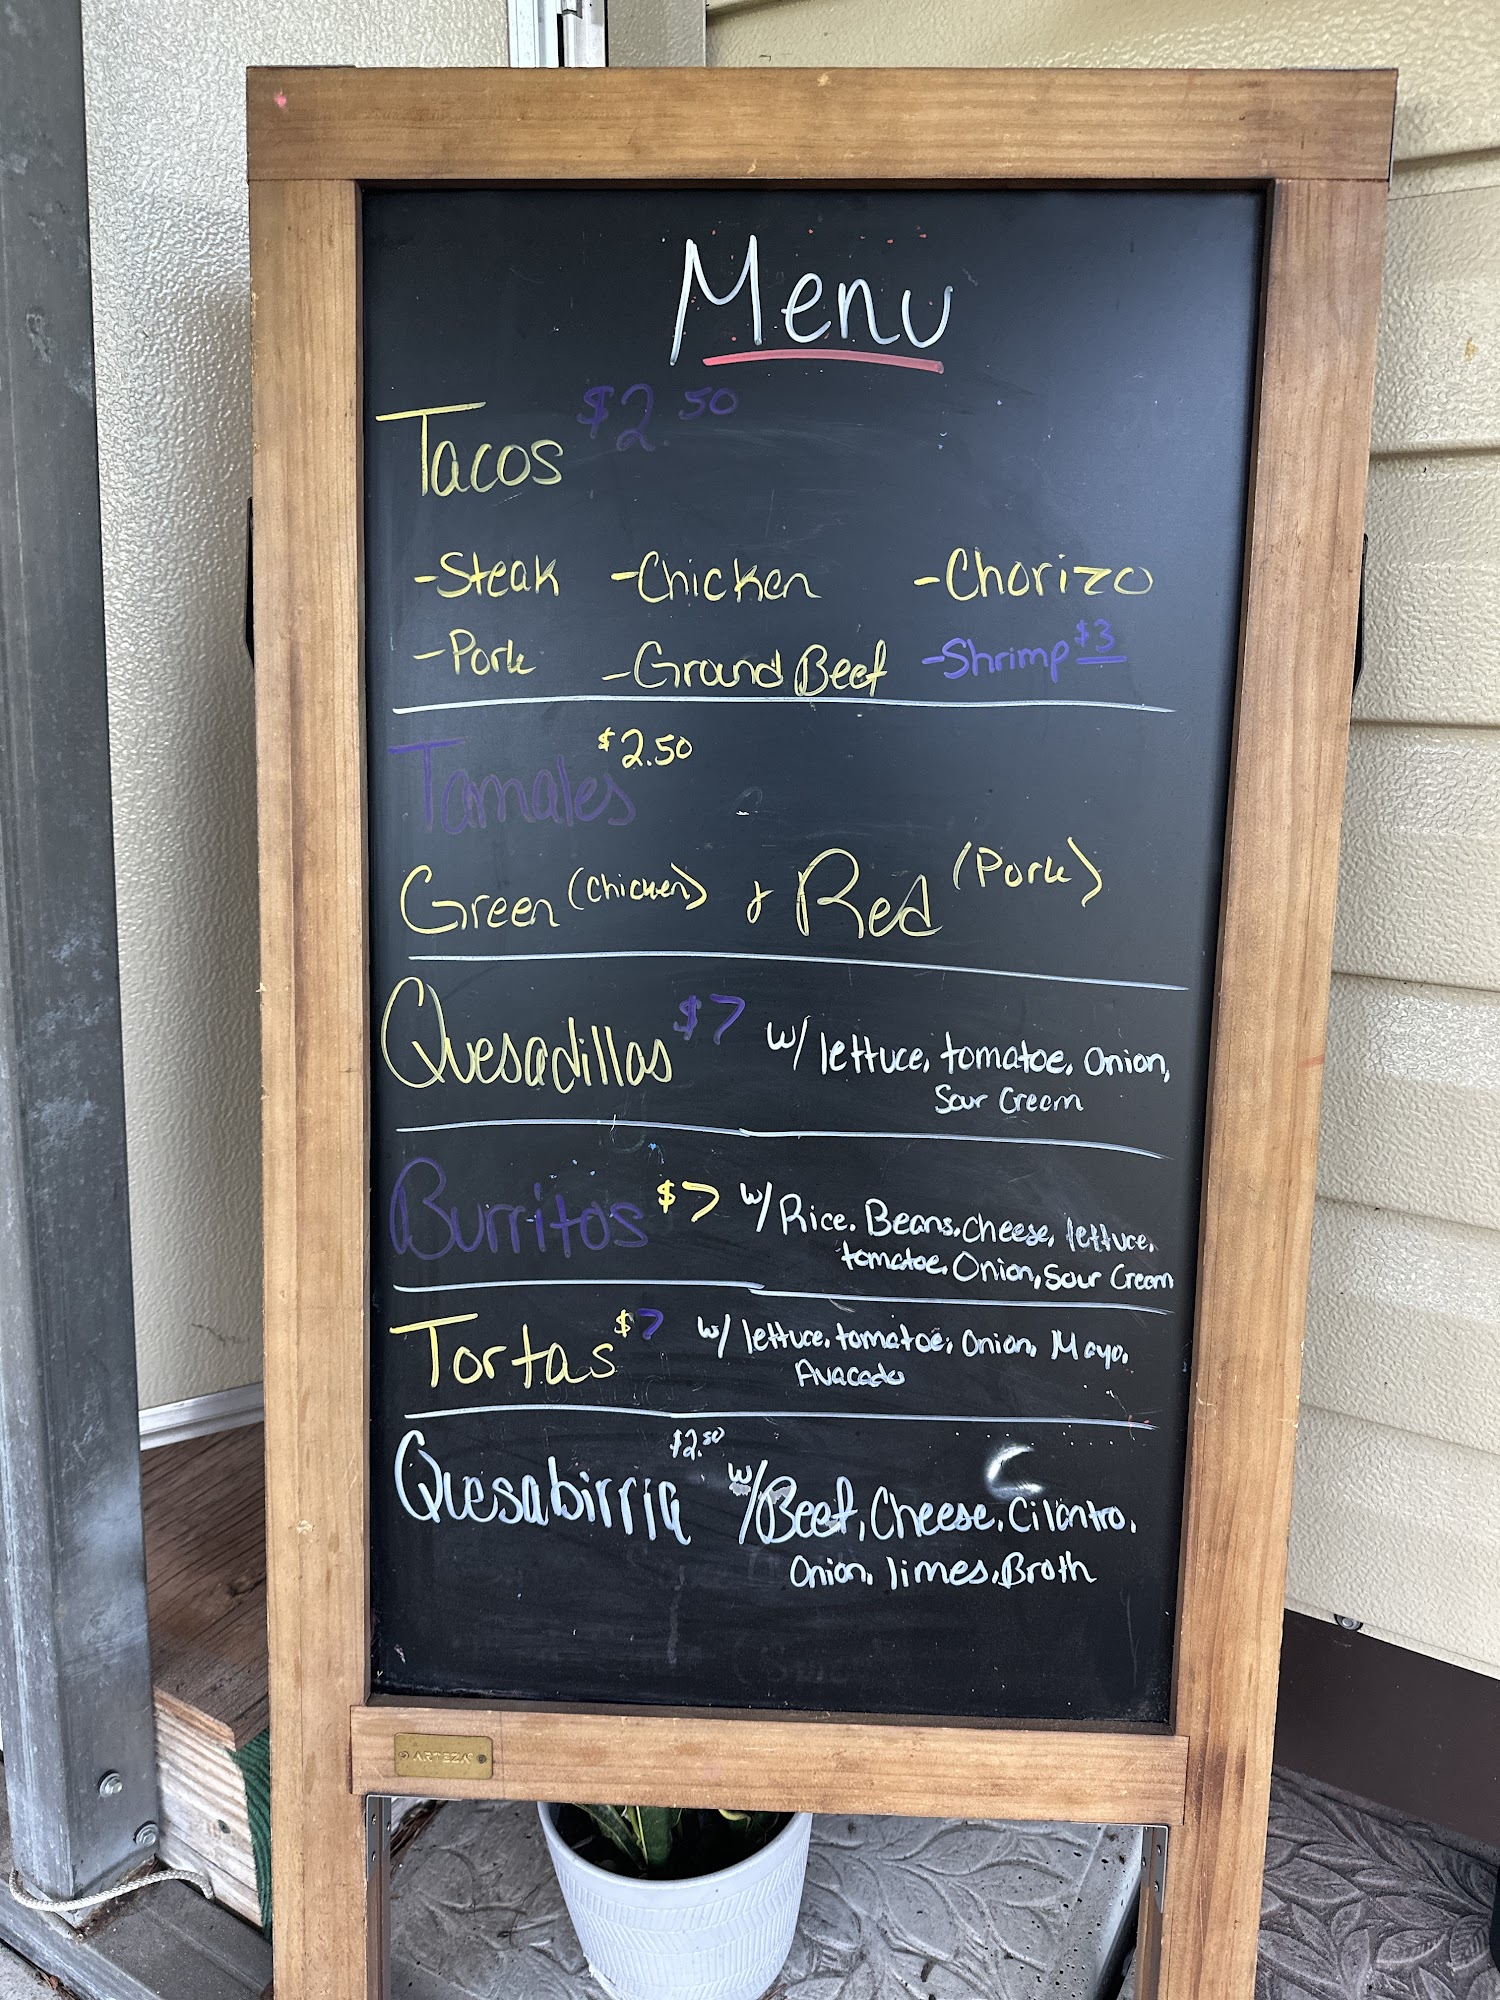 Menu
Tacos $2.50
-Steak -Chicken -Chorizo
-Pork -Ground Beef -Shrimp $3
Tamales $2.50
Green (Chicken) & Red (Pork)
Quesadillas $7 w/ lettuce, tomatoe, Onion,
Sour Cream
Burritos $7 w/ Rice, Beans, Cheese, lettuce,
tomatoe, Onion, Sour Cream
Tortas $7 w/ lettuce, tomatoe, Onion, Mayo,
Avacado
Quesabirria $2.50 w/ Beef, Cheese, Cilantro,
Onion, limes, Broth
ARTEZA